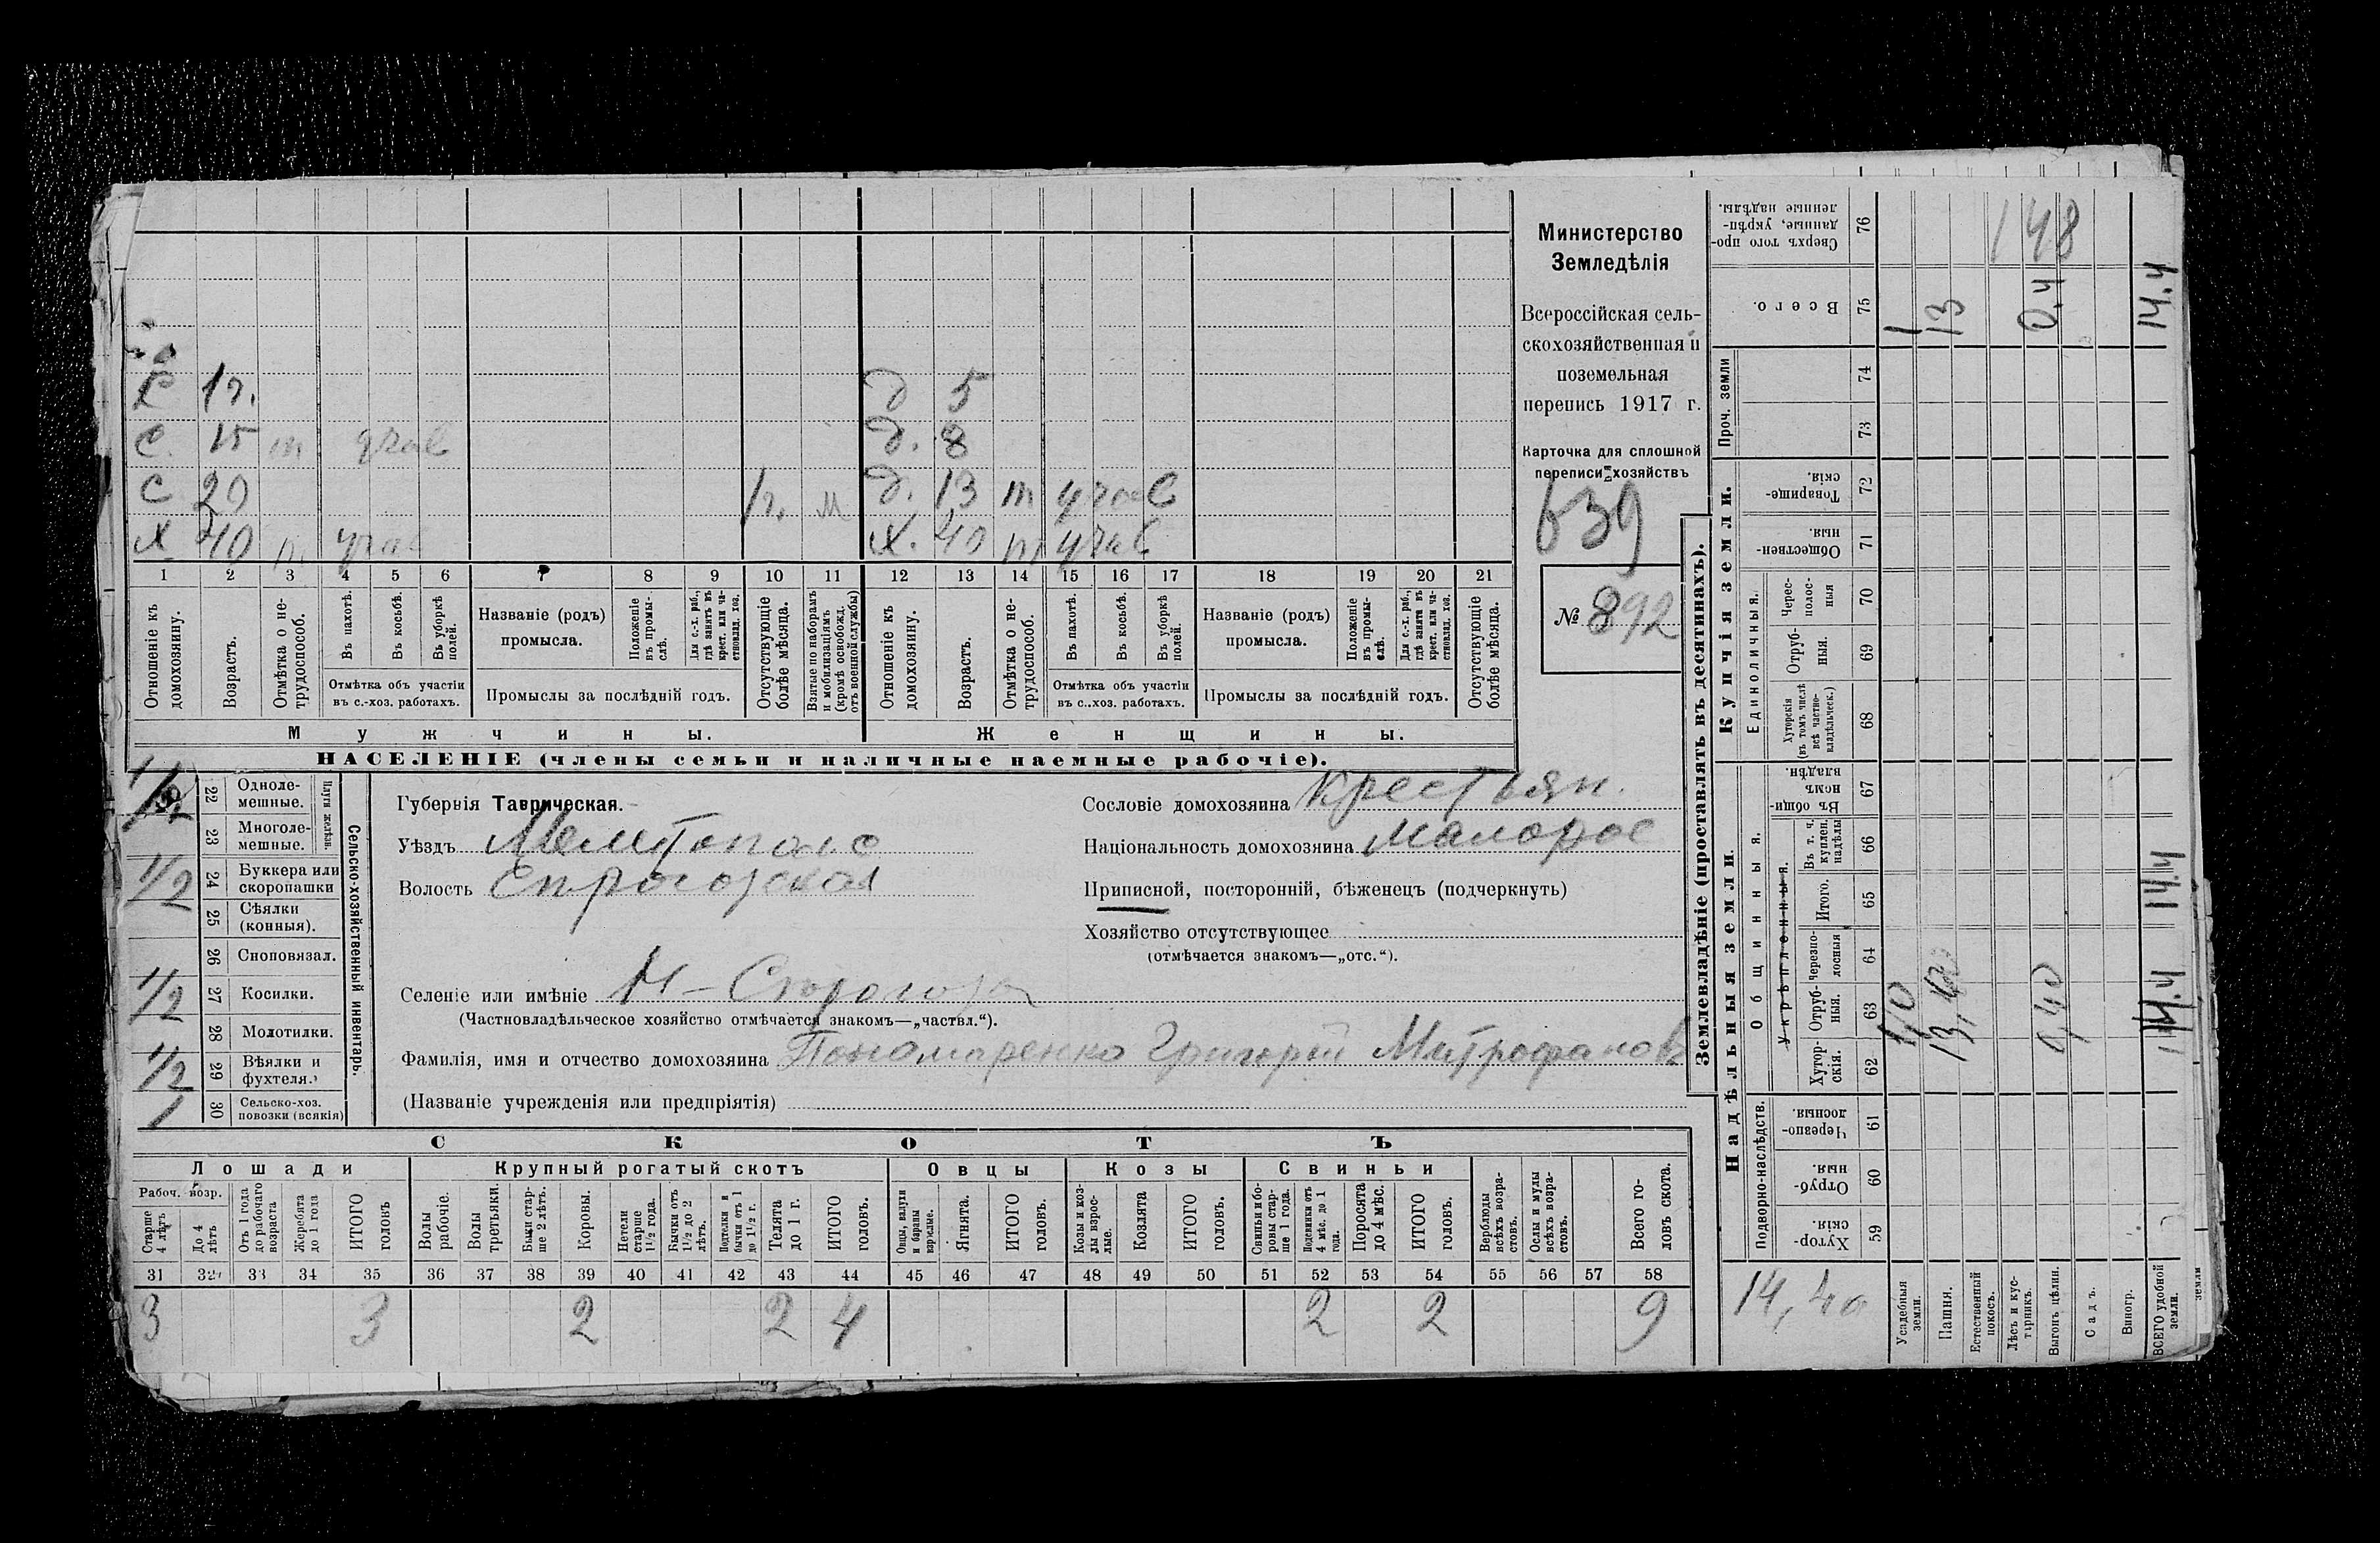 Министерство
Земледѣлія
Всероссійская сель-
скохозяйственная и
поземельная
перепись 1917 г.
Карточка для сплошной
переписи хозяйствъ
639
№ 892
С 1 г. д 5
С. 15 д. 8
С 20 1 г. м д. 13 т учас
Х 40 Х. 40
1 2 3 4 5 6 7 8 9 10 11 12 13 14 15 16 17 18 19 20 21
Отношеніе къ домохозяину.
Возрастъ.
Отмѣтка о не-трудоспособ.
Въ пахотѣ.
Въ косьбѣ.
Въ уборкѣ полей.
Отмѣтка объ участіи въ с.-хоз. работахъ.
Названіе (родъ) промысла.
Положеніе въ промы-слѣ.
Для с.-х. раб., гдѣ занятъ въ крест. или ча-стновлад. хоз.
Промыслы за послѣдній годъ.
Отсутствующіе болѣе мѣсяца.
Взятые по наборамъ и мобилизаціямъ (кромѣ освобожд. отъ военной службы)
Отношеніе къ домохозяину.
Возрастъ.
Отмѣтка о не-трудоспособ.
Въ пахотѣ.
Въ косьбѣ.
Въ уборкѣ полей.
Отмѣтка объ участіи въ с..хоз. работахъ.
Названіе (родъ) промысла.
Положеніе въ промы-слѣ.
Для с.-х. раб., гдѣ занятъ въ крест. или ча-стновлад. хоз.
Промыслы за послѣдній годъ.
Отсутствующіе болѣе мѣсяца.
Мужчины. Женщины.
НАСЕЛЕНІЕ (члены семьи и наличные наемные рабочіе).
22 Одноле-мешные.
23 Многоле-мешные.
Плуги желѣзн.
1/2 24 Буккера или скоропашки
25 Сѣялки (конныя).
26 Сноповязал.
1/2 27 Косилки.
28 Молотилки.
1/2 29 Вѣялки и фухтеля.
1 30 Сельско-хоз. повозки (всякія)
Сельско-хозяйственный инвентарь.
Губернія Таврическая.
Уѣздъ Мелитополс
Волость
Селеніе или имѣніе
(Частновладѣльческое хозяйство отмѣчается знакомъ—„частвл.“).
Фамилія, имя и отчество домохозяина Пономаренко Григорій Митрофанов
(Названіе учрежденія или предпріятія)
Сословіе домохозяина Крестьян.
Національность домохозяина Малорос
Приписной, посторонній, бѣженецъ (подчеркнуть)
Хозяйство отсутствующее
(отмѣчается знакомъ—„отс.“).
СКОТЪ
Лошади Крупный рогатый скотъ Овцы Козы Свиньи
Рабоч. возр.
Старше 4 лѣтъ
До 4 лѣтъ
Отъ 1 года до рабочаго возраста
Жеребята до 1 года
ИТОГО головъ
Волы рабочіе.
Волы третьяки.
Быки стар-ше 2 лѣтъ.
Коровы.
Нетели старше 1 1/2 года.
Бычки отъ 1 1/2 до 2 лѣтъ.
Подтелки и бычки отъ 1 до 1 1/2 г.
Телята до 1 г.
ИТОГО головъ.
Овцы, валухи и бараны взрослые.
Ягнята.
ИТОГО головъ.
Козы и коз-лы взрос-лые.
Козлята
ИТОГО головъ.
Свиньи и бо-ровы стар-ше 1 года.
Подсвинки отъ 4 мѣс. до 1 года.
Поросята до 4 мѣс.
ИТОГО головъ.
Верблюды всѣхъ возра-стовъ.
Ослы и мулы всѣхъ возра-стовъ.
Всего го-ловъ скота.
31 32 33 34 35 36 37 38 39 40 41 42 43 44 45 46 47 48 49 50 51 52 53 54 55 56 57 58
3 3 2 2 4 2 2 9
Землевладѣніе (проставлять въ десятинахъ).
Надѣльныя земли Купчія земли. Проч. земли
Подворно-наслѣдств.
Общинныя.
Укрѣпленныя.
Единоличныя.
Хутор-скія. 59
Отруб-ныя. 60
Черезпо-лосныя. 61
Хутор-скія. 62
Отруб-ныя. 63
Черезпо-лосныя 64
Итого. 65
Въ т. ч. куплен. надѣлы 66
Въ общи-номъ владѣн. 67
Хуторскія (въ томъ числѣ всѣ частно-владѣльческ.) 68
Отруб-ныя. 69
Черес-полос-ныя 70
Обществен-ныя. 71
Товарище-скія. 72
73
74
Всего. 75
Сверхъ того про-данные, укрѣп-ленные надѣлы. 76
14,40
Усадебныя земли. 1,0 1
Пашня. 13
Естественный покосъ.
Лѣсъ и кус-тарникъ.
Выгонъ цѣлин. 0,40 0.4
Садъ.
Виногр.
ВСЕГО удобной земли. 14.4 14.4 14.4
земли
148